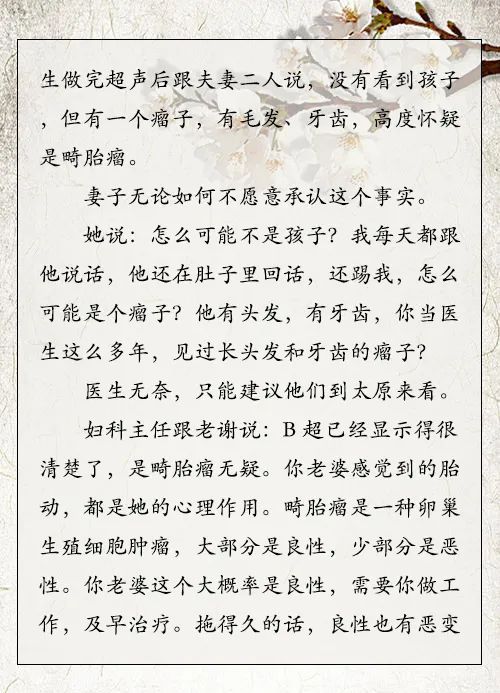 生做完超声后跟夫妻二人说，没有看到孩子
，但有一个瘤子，有毛发、牙齿，高度怀疑
是畸胎瘤。
妻子无论如何不愿意承认这个事实。
她说：怎么可能不是孩子？我每天都跟
他说话，他还在肚子里回话，还踢我，怎么
可能是个瘤子？他有头发，有牙齿，你当医
生这么多年，见过长头发和牙齿的瘤子？
医生无奈，只能建议他们到太原来看。
妇科主任跟老谢说：B 超已经显示得很
清楚了，是畸胎瘤无疑。你老婆感觉到的胎
动，都是她的心理作用。畸胎瘤是一种卵巢
生殖细胞肿瘤，大部分是良性，少部分是恶
性。你老婆这个大概率是良性，需要你做工
作，及早治疗。拖得久的话，良性也有恶变